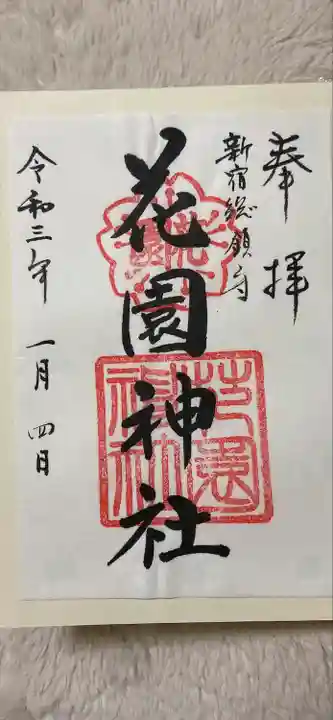 奉拝
新宿総鎮守
花園神社
令和三年 一月 四日
花園神社